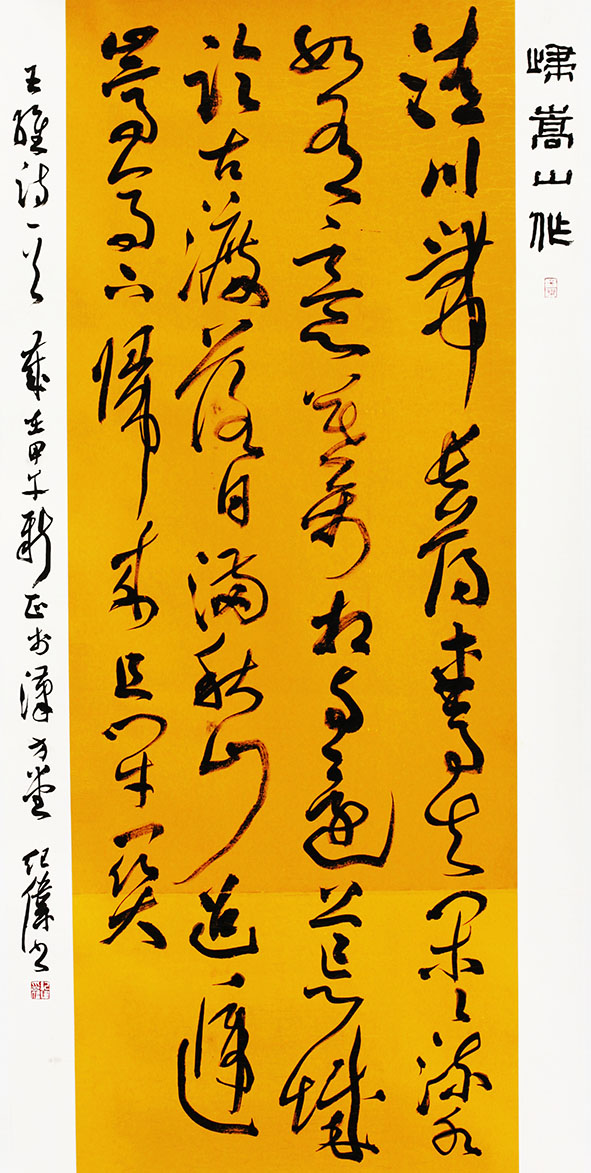 歸嵩山作
清川帶長薄車馬去閑閑流水
如有意暮禽相與還荒城
臨古渡落日滿秋山迢遞
嵩高下歸來且閉關
王維詩一首 歲在甲午新正於漢方堂 紀偉書